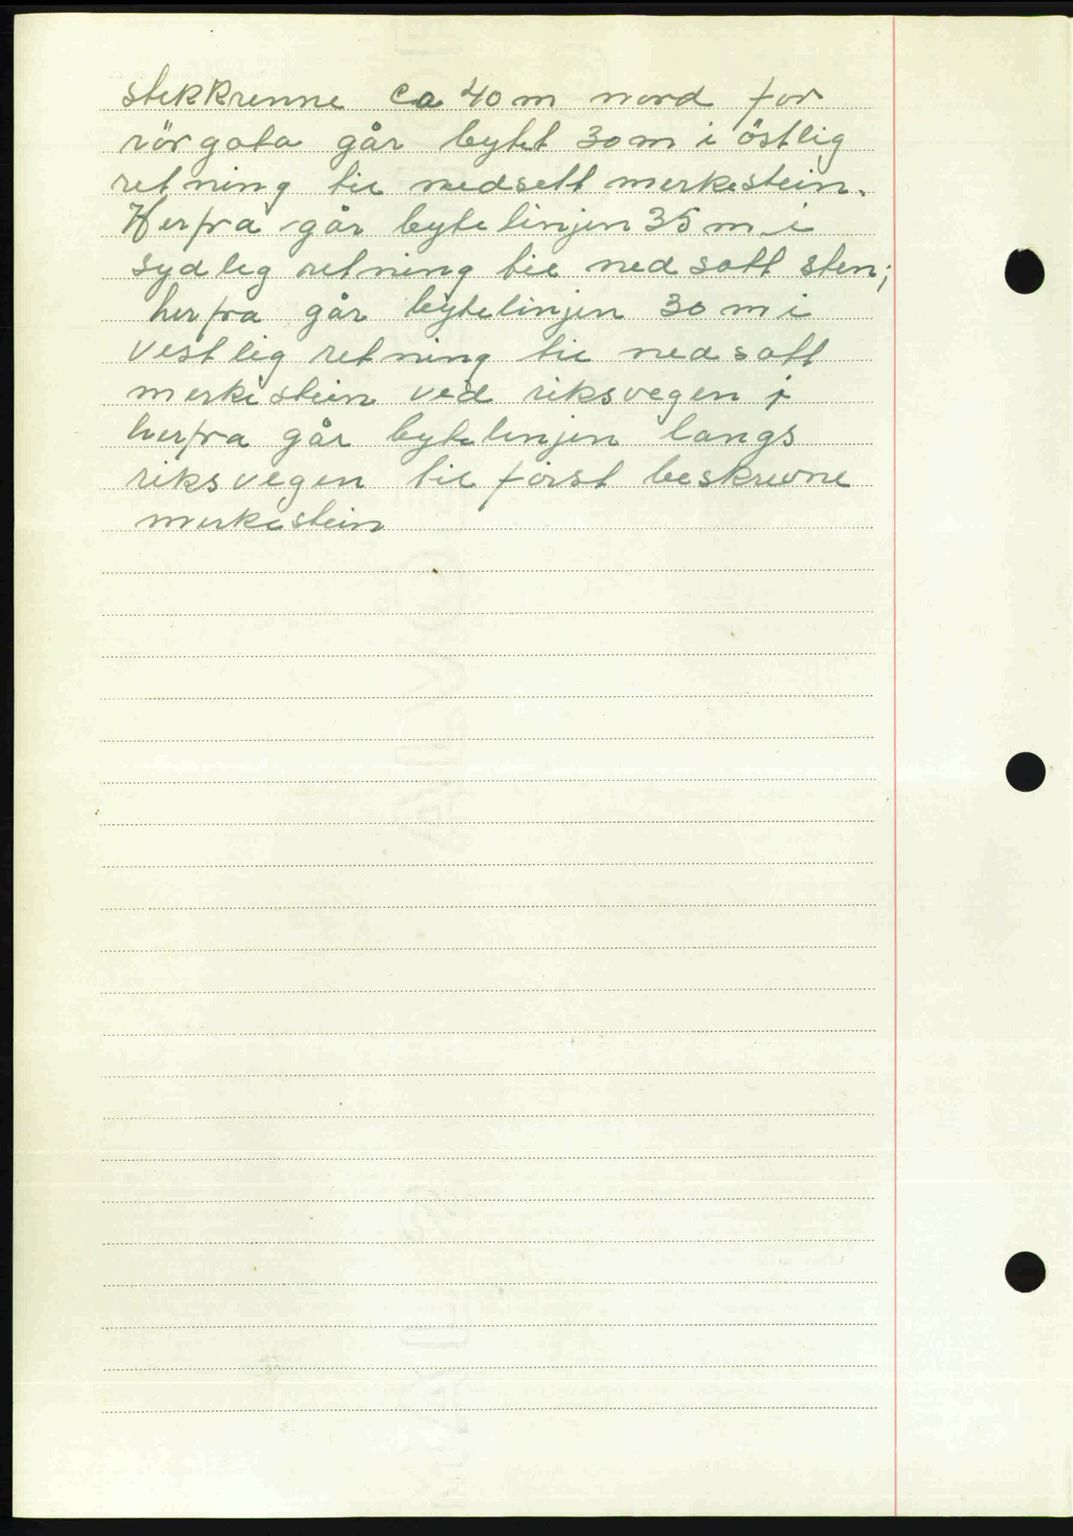 stekkrenne ca 40 m nord for
rör gata går bytet 30 m i östlig
retning til nedsett merkestein.
Herfra går bytelinjen 35 m i
sydlig retning til nedsatt sten;
herfra går bytelinjen 30 m i
vestlig retning til nedsatt
merkestein ved riksvegen;
herfra går bytelinjen langs
riksvegen til först beskrevne
merkestein